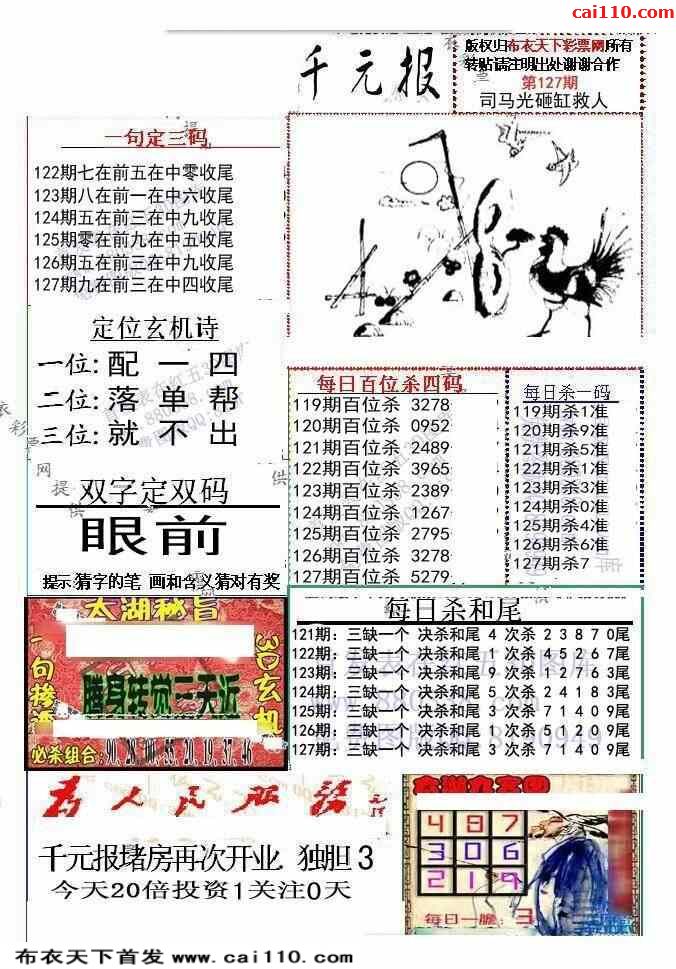 cai110.com
千元报
版权归布衣天下彩票网所有
转贴请注明出处谢谢合作
第127期
司马光砸缸救人
一句定三码
122期七在前五在中零收尾
123期八在前一在中六收尾
124期五在前三在中九收尾
125期零在前九在中五收尾
126期五在前三在中九收尾
127期九在前三在中四收尾
定位玄机诗
一位: 配 一 四
二位: 落 单 帮
三位: 就 不 出
双字定双码
眼前
提示:猜字的笔 画和含义猜对有奖
每日百位杀四码
119期百位杀 3278
120期百位杀 0952
121期百位杀 2489
122期百位杀 3965
123期百位杀 2389
124期百位杀 1267
125期百位杀 2795
126期百位杀 3278
127期百位杀 5279
每日杀一码
119期杀1准
120期杀9准
121期杀5准
122期杀1准
123期杀3准
124期杀0准
125期杀4准
126期杀6准
127期杀7
每日杀和尾
121期: 三缺一个 决杀和尾 4 次杀 2 3 8 7 0尾
122期: 三缺一个 决杀和尾 1 次杀 4 5 2 6 7尾
123期: 三缺一个 决杀和尾 9 次杀 1 2 7 6 3尾
124期: 三缺一个 决杀和尾 5 次杀 2 4 1 8 3尾
125期: 三缺一个 决杀和尾 3 次杀 7 1 4 0 9尾
126期: 三缺一个 决杀和尾 1 次杀 5 1 2 0 9尾
127期: 三缺一个 决杀和尾 3 次杀 7 1 4 0 9尾
太湖秘旨
3D玄机
腾身转觉三天近
必杀组合: 90, 28, 00, 55, 20, 19, 37, 46
为人民服务
千元报堵房再次开业. 独胆 3
今天20倍投资1关注0天
4 8 7
3 0 6
2 1 9
每日一胆: 3
布衣天下首发 www.cai110.com